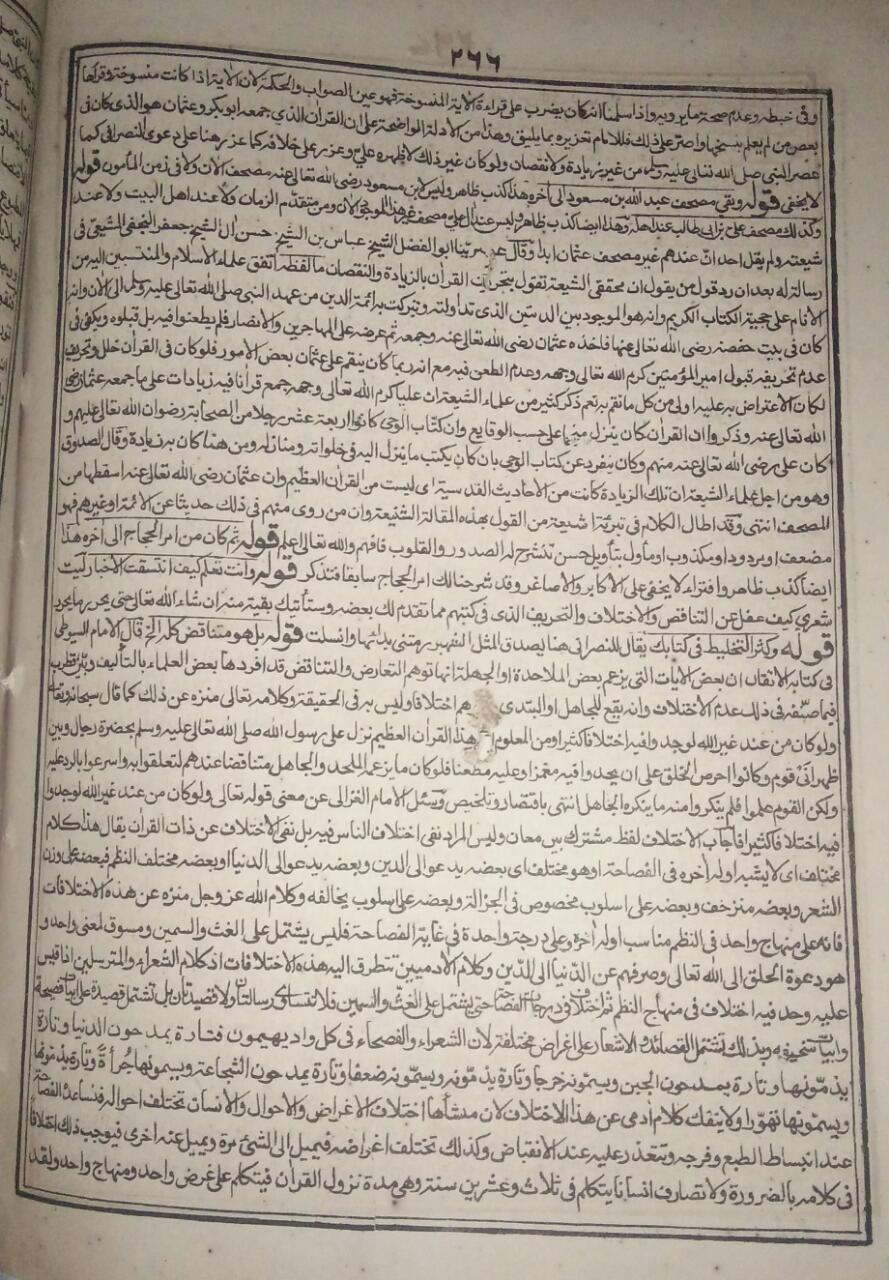 ٢٦٦
وفى خبطه وعدم صحة مايرويه واذا سلمنا انه كان يضرب على قراءة الاية المنسوخة فهو عين الصواب والحكمة لان الاية اذا كانت منسوخة وقرأها
بعض من لم يعلم بنسخها واصر على ذلك فللامام تعزيره بما يليق وهذا من الادلة الواضحة على ان القرأن الذي جمعه ابوبكر وعثمان هو الذى كان فى
عصر النبى صلى الله تعالى عليه وسلم من غير زيادة ولا نقصان ولو كان غير ذلك لاظهره علي وعزر على خلافه كما عزر هنا على دعوى النصرانى كما
لا يخفى قوله وبقي مصحف عبد الله بن مسعود الى أخره هذا كذب ظاهر وليس لابن مسعود رضى الله تعالى عنه مصحف الأن ولا فى زمن المأمون قوله
وكذلك مصحف على بن ابى طالب عند اهله وهذا ايضا كذب ظاهر وليس عند أل علي مصحف غير هذا الموجود الأن ومن متقدم الزمان ولا عند اهل البيت ولا عند
شيعته ولم يقل احد ان عندهم غير مصحف عثمان ابدا وقال ابو الفضل الشيخ عباس بن الشيخ حسن أل الشيخ جعفر النجفى الشيعى فى
رسالة له بعد ان رد قول من يقول ان محققى الشيعة تقول بتحريف القرأن بالزيادة والنقصان ما لفظه اتفق علماء الاسلام والمنتسبين اليه من
الانام على حجية الكتاب الكريم وانه هو الموجود بين الدفتين الذى تداولته وتبركت به ائمة الدين من عهد النبى صلى الله تعالى عليه وسلم الى الأن وانه
كان فى بيت حفصة رضى الله تعالى عنها فاخذه عثمان رضى الله تعالى عنه وجمعه ثم عرضه على المهاجرين والانصار فلم يطعنوا فيه بل قبلوه ويكفى فى
عدم تحريفه قبول امير المؤمنين كرم الله تعالى وجهه وعدم الطعن فيه مع انه ربما كان ينقم على عثمان بعض الامور فلو كان فى القرأن خلل وتحريف
لكان الاعتراض به عليه اولى من كل ما نقم به نعم ذكر كثير من علماء الشيعة ان عليا كرم الله تعالى وجهه جمع قرأنا فيه زيادات على ما جمعه عثمان رضى
الله تعالى عنه وذكروا ان القرأن كان ينزل منجما على حسب الوقايع وان كتاب الوحى كانوا اربعة عشر رجلا من الصحابة رضوان الله تعالى عليهم و
كان على رضى الله تعالى عنه منهم وكان ينفرد عن كتاب الوحى بان كان يكتب ما ينزل اليه فى خلواته ومنازله ومن هنا كان به زيادة وقال الصدوق
وهو من اجل علماء الشيعة ان تلك الزيادة كانت من الاحاديث القدسية اى ليست من القرأن العظيم وان عثمان رضى الله تعالى عنه اسقطها من
المصحف انتهى وقد اطال الكلام فى تبرئة الشيعة من القول بهذه المقالة الشنيعة وان من روى منهم فى ذلك حديثا عن الائمة او غيرهم فهو
مضعف او مردود او مكذوب او مأول بتأويل حسن تنشرح له الصدور والقلوب فافهم والله تعالى اعلم قوله ثم كان من امر الحجاج الى أخره هذا
ايضا كذب ظاهر وافتراء لا يخفى على الاكابر والاصاغر وقد شرحنا لك امر الحجاج سابقا فتذكر قوله وانت تعلم كيف انتسقت الاخبار ليت
شعري كيف غفل عن التناقض والاختلاف والتحريف الذى فى كتبهم مما تقدم لك بعضه وستأتيك بقيته منه ان شاء الله تعالى حتى يحرر ما يحرر
قوله وكثر التخليط فى كتابك يقال للنصرانى هنا يصدق المثل الشهير رمتنى بدائها وانسلت قوله بل هو متناقض كله الخ قال الامام السيوطى
فى كتابه الاتقان ان بعض الايات التى يزعم بعض الملاحدة او الجهلة انها توهم التعارض والتناقض قد افردها بعض العلماء بالتأليف وبين قطرب
فيما صنفه فى ذلك عدم الاختلاف وانه يقع للجاهل او المبتدى هم اختلافا وليس به فى الحقيقة وكلامه تعالى منزه عن ذلك كما قال سبحانه وتعالى
ولو كان من عند غير الله لوجدوا فيه اختلافا كثيرا ومن المعلوم ان هذا القرأن العظيم نزل على رسول الله صلى الله تعالى عليه وسلم بحضرة رجال وبين
ظهرانى قوم وكانوا احرص الخلق على ان يجدوا فيه مغمزا وعليه مطعنا فلو كان ما يزعمه الملحد والجاهل متناقضا عندهم لتعلقوا به واسرعوا بالرد عليه
ولكن القوم علموا فلم ينكروا منه ما ينكره الجاهل انتهى باقتصار وتلخيص وسئل الامام الغزالى عن معنى قوله تعالى ولو كان من عند غير الله لوجدوا
فيه اختلافا كثيرا فاجاب الاختلاف لفظ مشترك بين معان وليس المراد نفى اختلاف الناس فيه بل نفى الاختلاف عن ذات القرأن يقال هذا كلام
مختلف اى لا يشبه اوله أخره فى الفصاحة او هو مختلف اى بعضه يدعو الى الدين وبعضه يدعو الى الدنيا او بعضه مختلف النظم فبعضه على وزن
الشعر وبعضه منزحف وبعضه على اسلوب مخصوص فى الجزالة وبعضه على اسلوب يخالفه وكلام الله عز وجل منزه عن هذه الاختلافات
فانه على منهاج واحد فى النظم مناسب اوله أخره وعلى درجة واحدة فى غاية الفصاحة فليس يشتمل على الغث والسمين ومسوق لمعنى واحد و
هو دعوة الخلق الى الله تعالى وصرفهم عن الدنيا الى الدين وكلام الأدميين تتطرق اليه هذه الاختلافات اذ كلام الشعراء والمترسلين اذا قيس
عليه وجد فيه اختلاف فى منهاج النظم ثم اختلاف فى درجات الفصاحة حتى يشتمل على الغث والسمين فلا تتساوى رسالتان ولا قصيدتان بل تشتمل قصيدة على ابيات فصيحة
وابيات سخيفة وبذلك تشتمل القصائد والاشعار على اغراض مختلفة لان الشعراء والفصحاء فى كل واد يهيمون فتارة يمدحون الدنيا وتارة
يذمونها وتارة يمدحون الجبن ويسمونه حزما وتارة يذمونه ويسمونه ضعفا وتارة يمدحون الشجاعة ويسمونها جرأة وتارة يذمونها
ويسمونها تهورا ولا ينفك كلام أدمى عن هذا الاختلاف لان منشأها اختلاف الاغراض والاحوال والانسان تختلف احواله فتساعد الفصاحة
عند انبساط الطبع وفرحه وتتعذر عليه عند الانقباض وكذلك تختلف اغراضه فيميل الى الشئ مرة ويميل عنه اخرى فيوجب ذلك اختلافا
فى كلامه بالضرورة ولا تصادف انسانا يتكلم فى ثلاث وعشرين سنة وهى مدة نزول القرأن فيتكلم على غرض واحد ومنهاج واحد ولقد